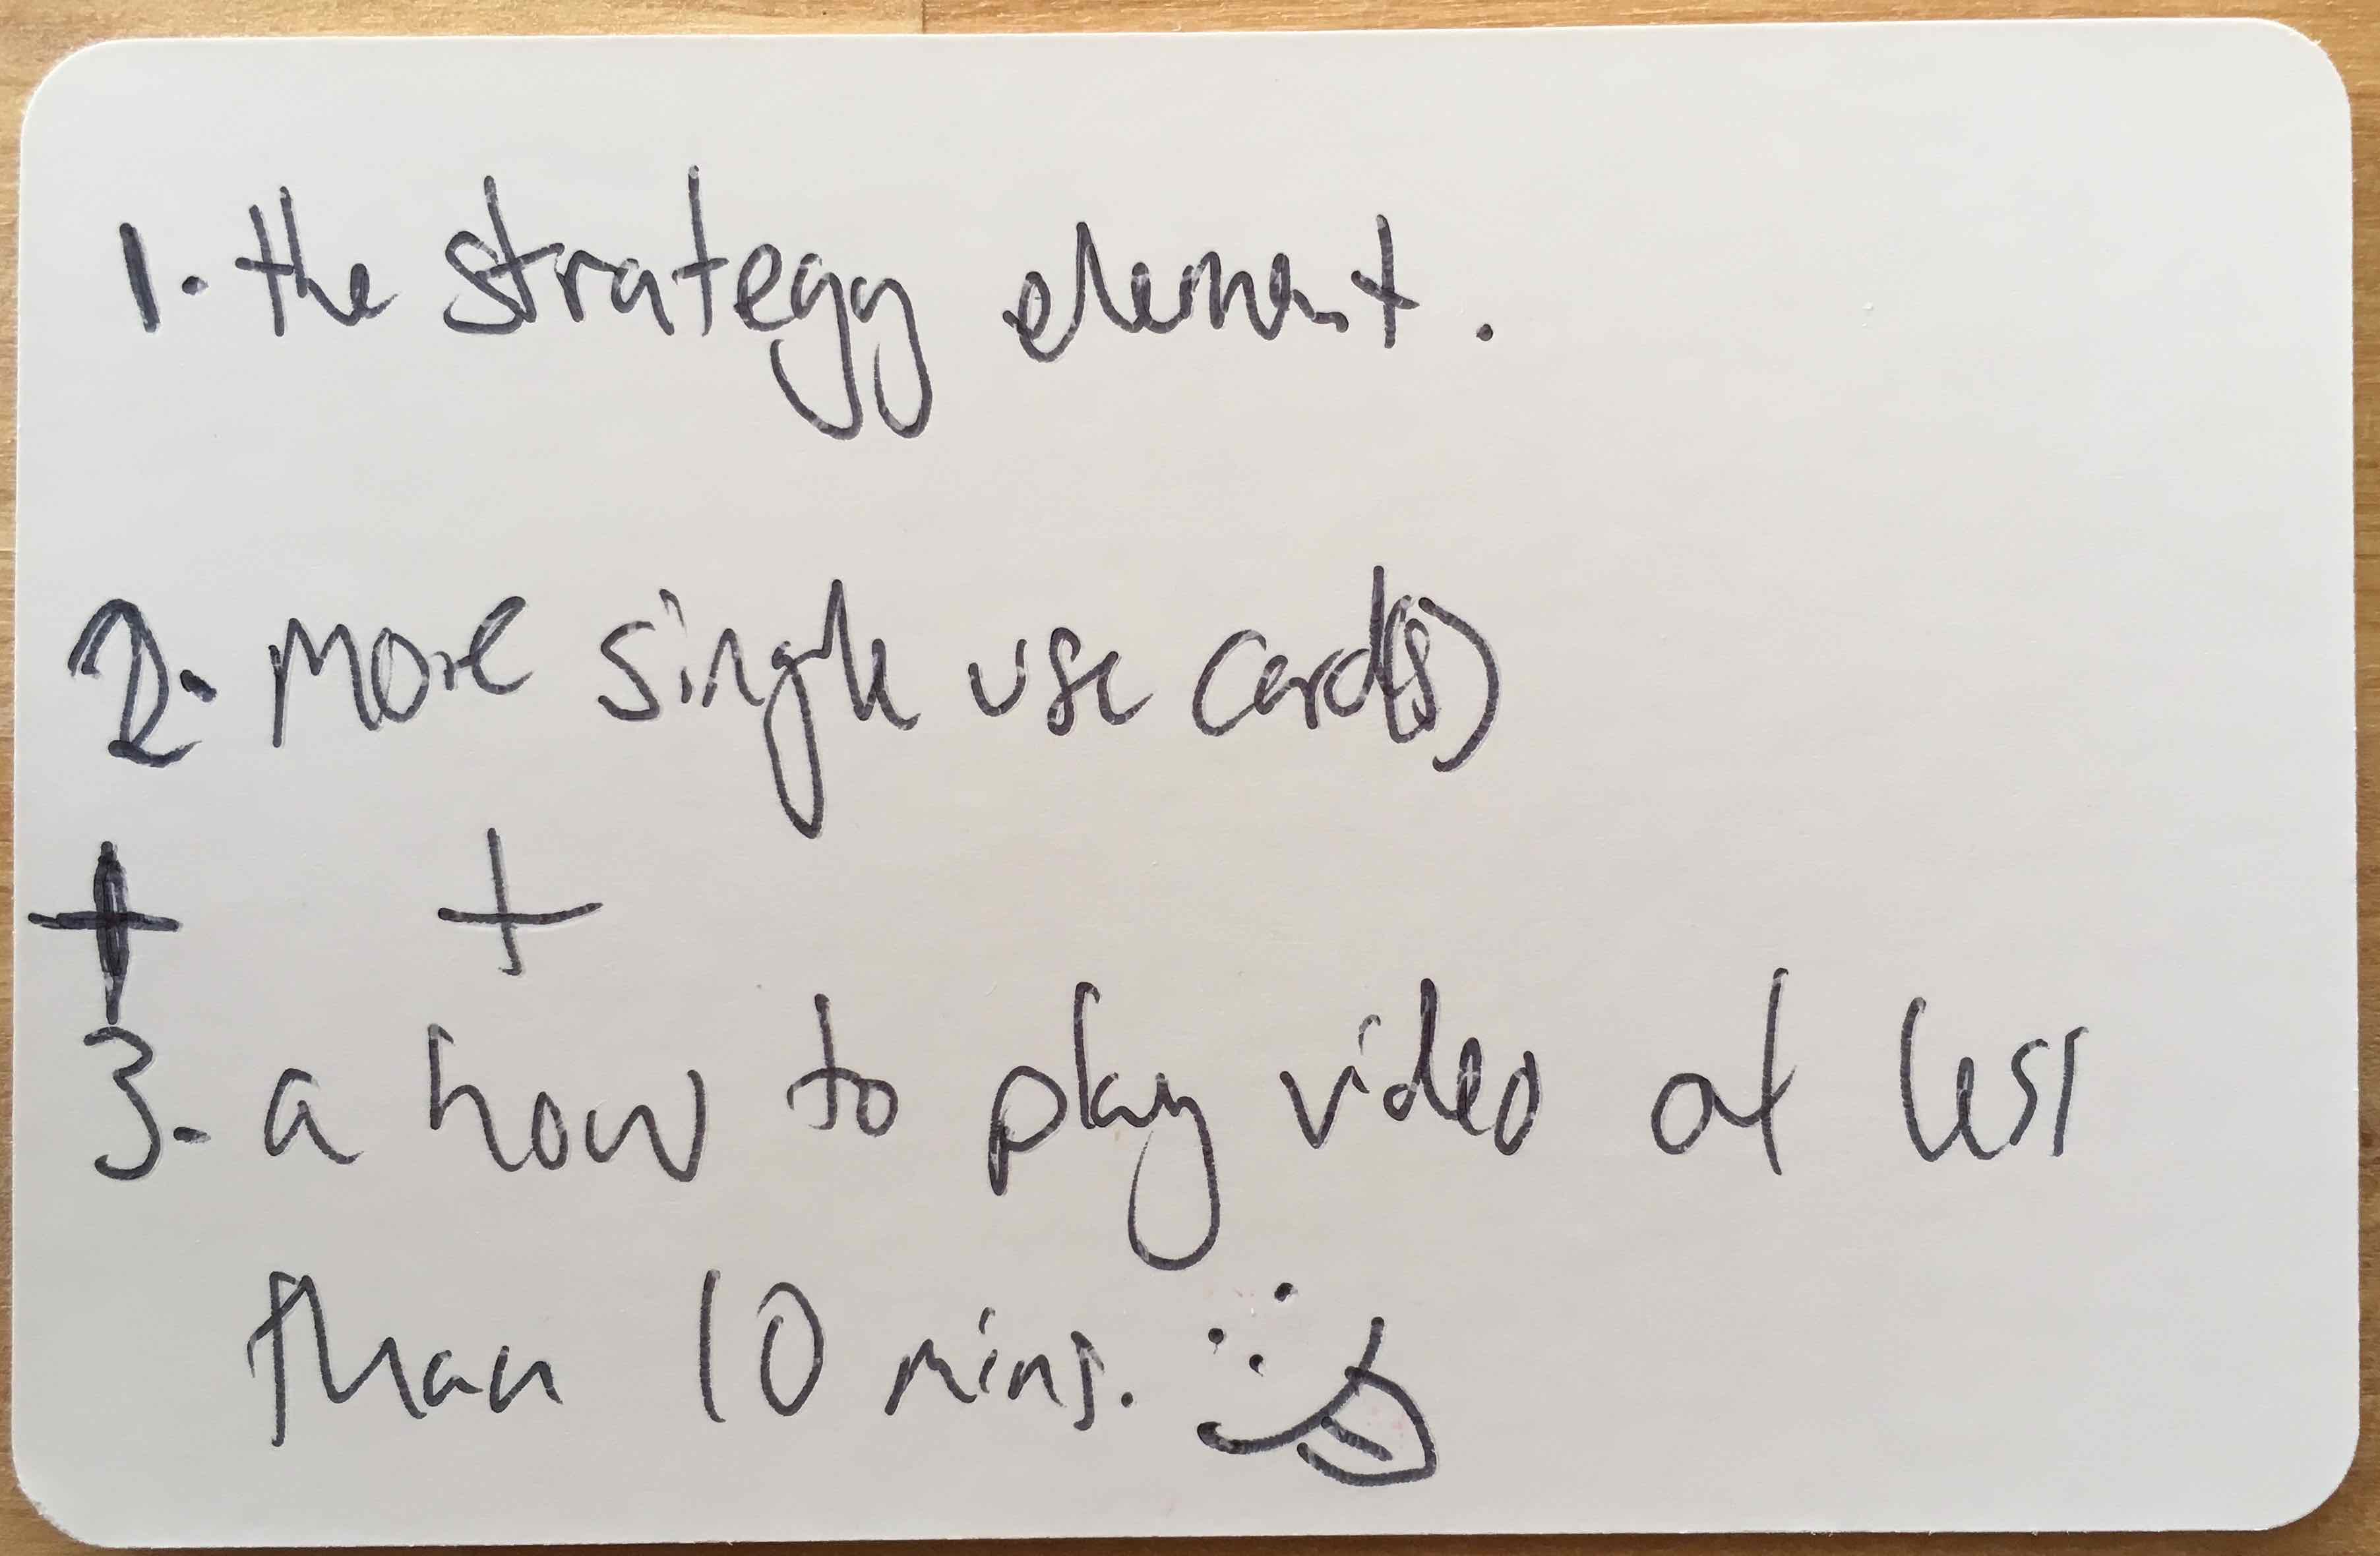 1. the strategy element.
2. More single use card(s)
+ +
3. a how to play video at less
than 10 mins.